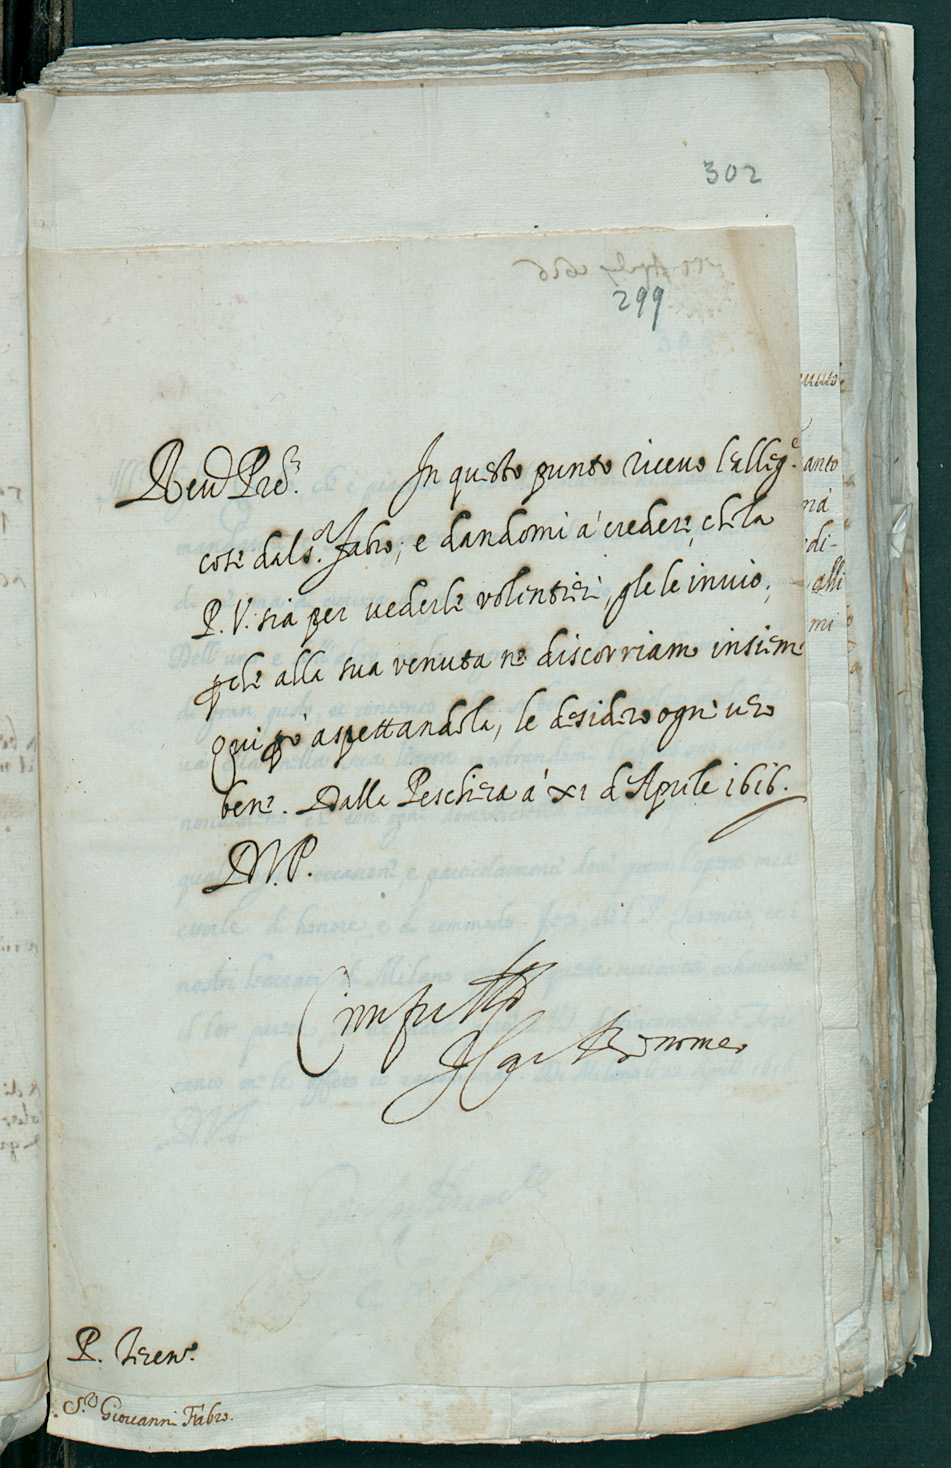 302
299
Reu.do Pre.
In questo punto riceuo l'alleg.e
cose dal s.or Fabro; e dandomi à credere, che la
P. V. sia per uederle volentieri, gle le inuio;
ꝑche alla sua venuta ne discorriamo insieme
Qui ꝑò aspettandola, le desidero ogni uero
bene. Dalla Peschiera à xi d'Aprile 1616.
D. V. P.
Come fratello
Il Car. Borromeo
P. Teren.o
S.r Giouanni Fabro.